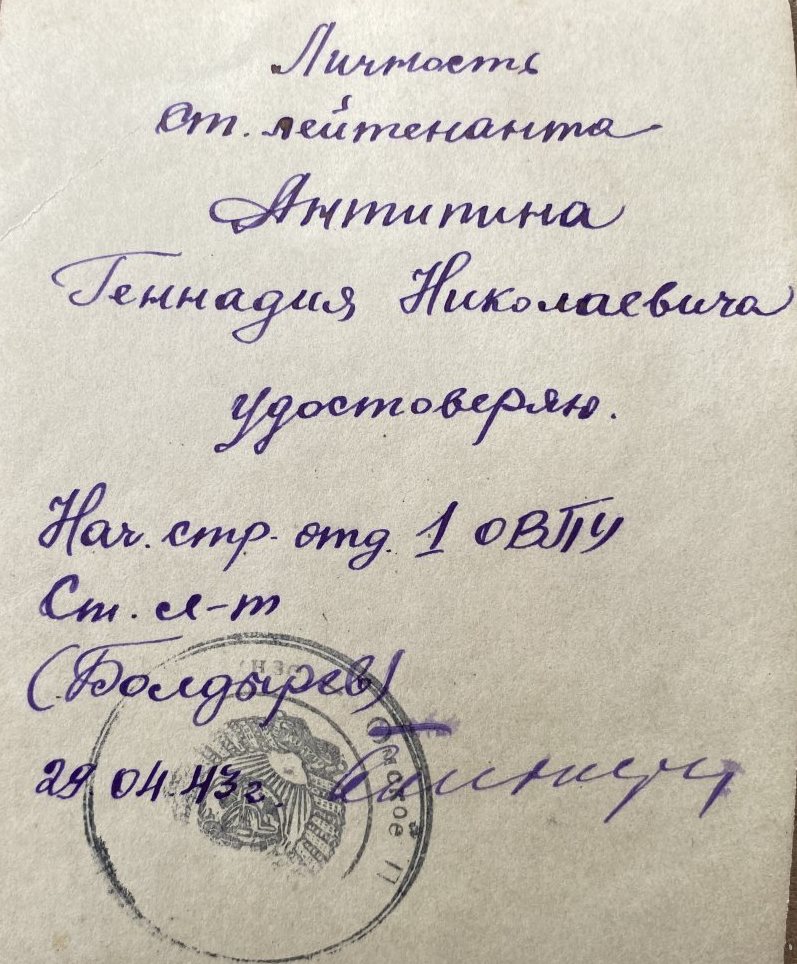 Личность
ст. лейтенанта
Антипина
Геннадия Николаевича
удостоверяю.
Нач. стр. отд. 1 ОВПУ
Ст. л-т
(Болдырев)
29.04.43 г.